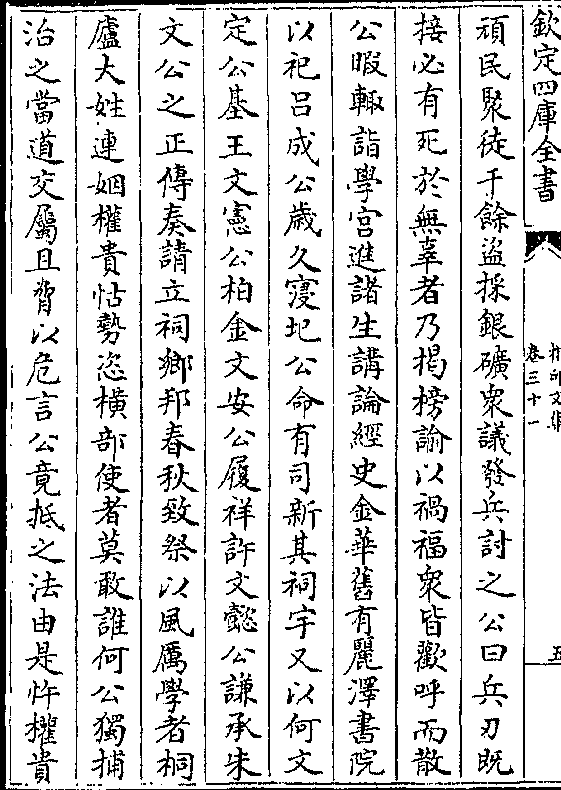 欽定四庫全書
卷三十一
五
頑民聚徒千餘盜採銀礦衆議發兵討之公曰兵刃既
接必有死於無辜者乃揭榜諭以禍福衆皆歡呼而散
公暇輒詣學宮進諸生講論經史金華舊有麗澤書院
以祀呂成公歲久寖圮公命有司新其祠宇又以何文
定公基王文憲公柏金文安公履祥許文懿公謙承朱
文公之正傳奏請立祠鄉邦春秋致祭以風厲學者桐
廬大姓連姻權貴怙勢恣橫部使者莫敢誰何公獨捕
治之當道交屬且脅以危言公竟抵之法由是忤權貴